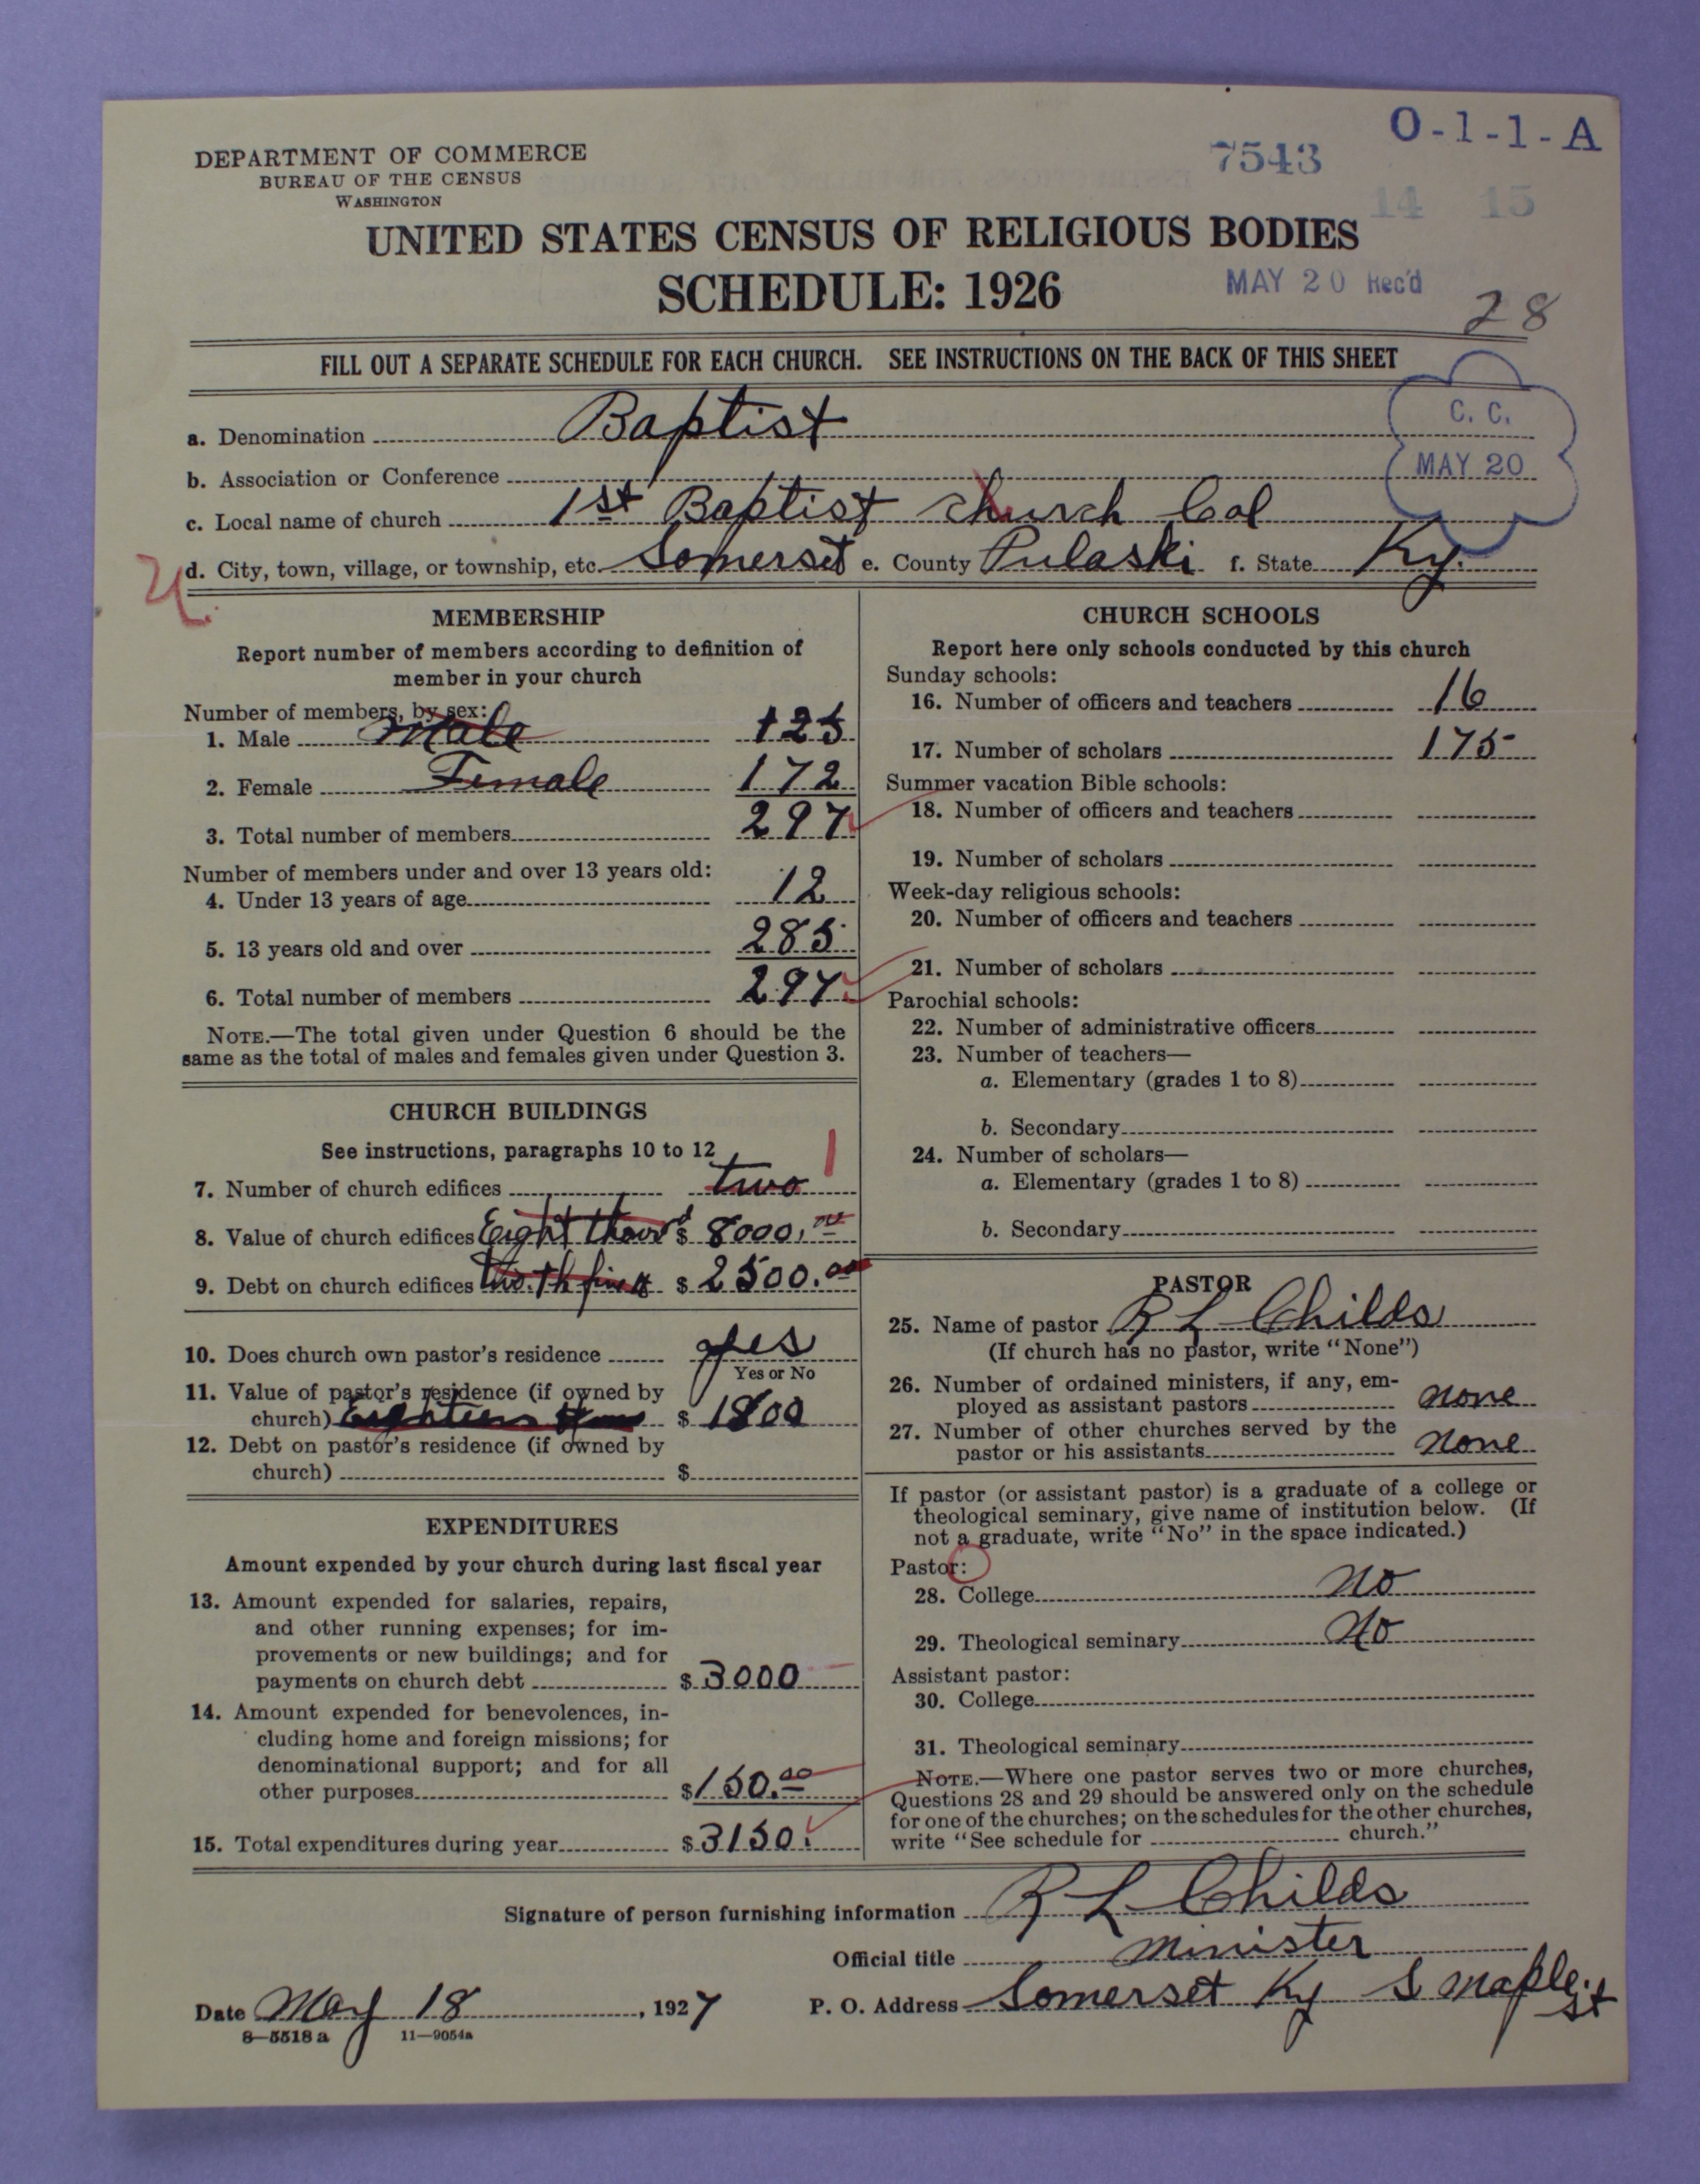 O-1-1-A
DEPARTMENT OF COMMERCE
7543
BUREAU OF THE CENSUS
WASHINGTON
14 15
UNITED STATES CENSUS OF RELIGIOUS BODIES
SCHEDULE: 1926
MAY 20 Rec'd
28
FILL OUT A SEPARATE SCHEDULE FOR EACH CHURCH. SEE INSTRUCTIONS ON THE BACK OF THIS SHEET
C. C.
MAY 20
a. Denomination Baptist
b. Association or Conference
c. Local name of church 1st Baptist church Col
d. City, town, village, or township, etc. Somerset e. County Pulaski f. State Ky.
U.
MEMBERSHIP
Report number of members according to definition of
member in your church
Number of members, by sex:
1. Male Male 125
2. Female Female 172
3. Total number of members 297
Number of members under and over 13 years old:
4. Under 13 years of age 12
5. 13 years old and over 285
6. Total number of members 297
NOTE.—The total given under Question 6 should be the
same as the total of males and females given under Question 3.
CHURCH BUILDINGS
See instructions, paragraphs 10 to 12
7. Number of church edifices two 1
8. Value of church edifices Eight thous'd $ 8000.00
9. Debt on church edifices $ 2500.00
10. Does church own pastor's residence yes
Yes or No
11. Value of pastor's residence (if owned by
church) Eighteen $ 1800
12. Debt on pastor's residence (if owned by
church) $
EXPENDITURES
Amount expended by your church during last fiscal year
13. Amount expended for salaries, repairs,
and other running expenses; for im-
provements or new buildings; and for
payments on church debt $ 3000
14. Amount expended for benevolences, in-
cluding home and foreign missions; for
denominational support; and for all
other purposes $ 150.00
15. Total expenditures during year $ 3150.
CHURCH SCHOOLS
Report here only schools conducted by this church
Sunday schools:
16. Number of officers and teachers 16
17. Number of scholars 175
Summer vacation Bible schools:
18. Number of officers and teachers
19. Number of scholars
Week-day religious schools:
20. Number of officers and teachers
21. Number of scholars
Parochial schools:
22. Number of administrative officers
23. Number of teachers—
a. Elementary (grades 1 to 8)
b. Secondary
24. Number of scholars—
a. Elementary (grades 1 to 8)
b. Secondary
PASTOR
25. Name of pastor R L Childs
(If church has no pastor, write "None")
26. Number of ordained ministers, if any, em-
ployed as assistant pastors none
27. Number of other churches served by the
pastor or his assistants none
If pastor (or assistant pastor) is a graduate of a college or
theological seminary, give name of institution below. (If
not a graduate, write "No" in the space indicated.)
Pastor:
28. College no
29. Theological seminary No
Assistant pastor:
30. College
31. Theological seminary
NOTE.—Where one pastor serves two or more churches,
Questions 28 and 29 should be answered only on the schedule
for one of the churches; on the schedules for the other churches,
write "See schedule for church."
Signature of person furnishing information R L Childs
Official title minister
Date May 18, 1927 P. O. Address Somerset Ky S maple st
8—5518 a 11—9054a